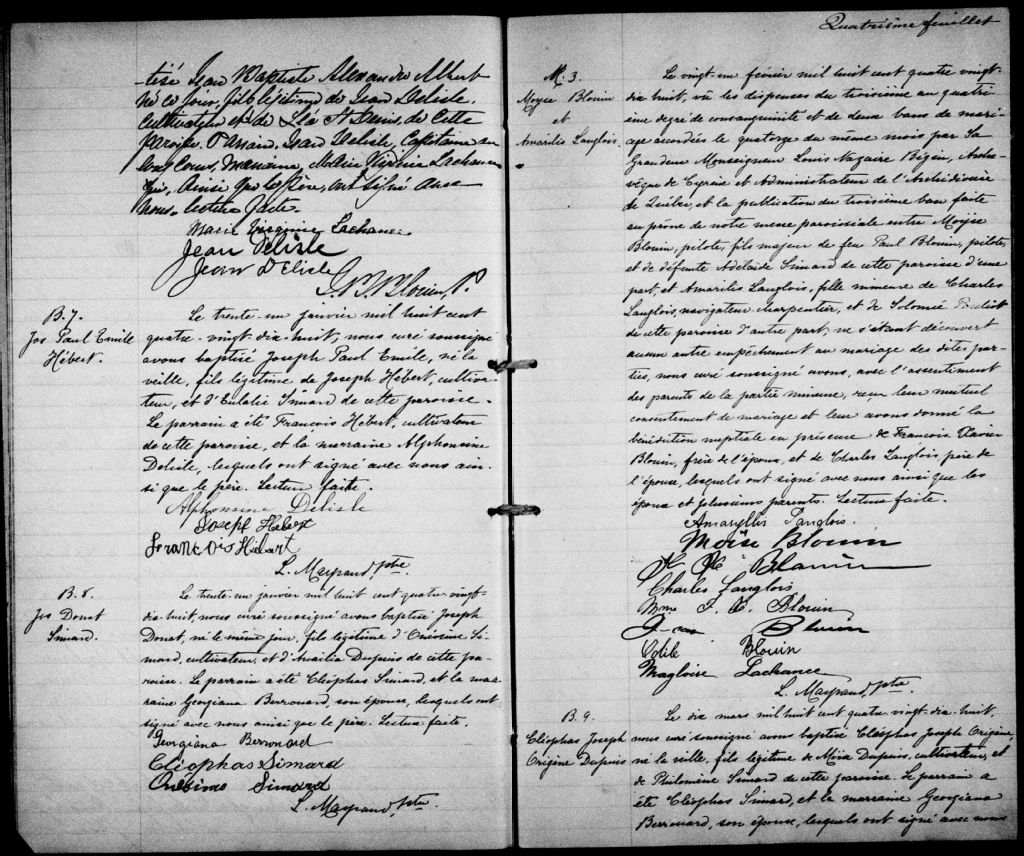 -tisé Jean Baptiste Alexandre Albert
né ce jour, fils légitime de Jean Delisle,
cultivateur et de Léa St Denis de cette
paroisse. Parrain, Jean Delisle, Capitaine au
long Cours, marraine, Marie Virginie Lachance
qui, ainsi que le père, ont signé avec
nous. lecture faite.
Marie Virginie Lachance
Jean Delisle
Jean Delisle
Blouin, P.
B. 7.
Jos Paul Emile
Hébert.
Le trente-un janvier mil huit cent
quatre-vingt-dix-huit, nous curé soussigné
avons baptisé Joseph Paul Emile, né la
veille, fils légitime de Joseph Hébert, cultiva-
teur, et d'Eulalie Simard de cette paroisse.
Le parrain a été François Hébert, cultivateur
de cette paroisse, et la marraine Alphonsine
Delisle, lesquels ont signé avec nous ain-
si que le père. Lecture faite.
Alphonsine Delisle
Joseph Hebert
Francois Hébert
L. Mayrand, ptre
B. 8.
Jos Donat
Simard.
Le trente-un janvier mil huit cent quatre vingt-
dix-huit, nous curé soussigné avons baptisé Joseph
Donat, né le même jour, fils légitime d'Onésime Si-
mard, cultivateur, et d'Amilia Dupuis de cette pa-
roisse. Le parrain a été Cléophas Simard, et la mar-
raine Georgiana Berrouard, son épouse, lesquels ont
signé avec nous ainsi que le père. Lecture faite.
Georgiana Berrouard
Cléophas Simard
Onésime Simard
L. Mayrand, ptre
Quatrième feuillet
M. 3.
Moyse Blouin
et
Amarilis Langlois.
Le vingt-un février mil huit cent quatre vingt-
dix huit, vu les dispenses du troisième au quatri-
ème degré de consanguinité et de deux bans de mari-
age accordées le quatorze du même mois par Sa
Grandeur Monseigneur Louis Nazaire Bégin, Arche-
vêque de Cyrène et Administrateur de l'Archidiocèse
de Québec, et la publication du troisième ban faite
au prône de notre messe paroissiale entre Moyse
Blouin, pilote, fils majeur de feu Paul Blouin, pilote,
et de défunte Adelaïde Simard de cette paroisse d'une
part, et Amarilis Langlois, fille mineure de Charles
Langlois, navigateur charpentier, et de Salomée
de cette paroisse d'autre part, ne s'étant découvert
aucun autre empêchement au mariage des dites par-
ties, nous curé soussigné avons, avec l'assentiment
des parents de la partie mineure, reçu leur mutuel
consentement de mariage et leur avons donné la
bénédiction nuptiale en présence de François Xavier
Blouin, frère de l'époux, et de Charles Langlois père de
l'épouse, lesquels ont signé avec nous ainsi que les
époux et plusieurs parents. Lecture faite.
Amaryllis Langlois.
Moïse Blouin
Blouin
Charles Langlois
Mme F. X. Blouin
Jean Blouin
Odile Blouin
Magloire Lachance
L. Mayrand, ptre
B. 9.
Cléophas Joseph
Origène Dupuis
Le dix mars mil huit cent quatre vingt-dix-huit,
nous curé soussigné avons baptisé Cléophas Joseph Origène,
né la veille, fils légitime de Moïse Dupuis, cultivateur, et
de Philomène Simard de cette paroisse. Le parrain a
été Cléophas Simard, et la marraine Georgiana
Berrouard, son épouse, lesquels ont signé avec nous